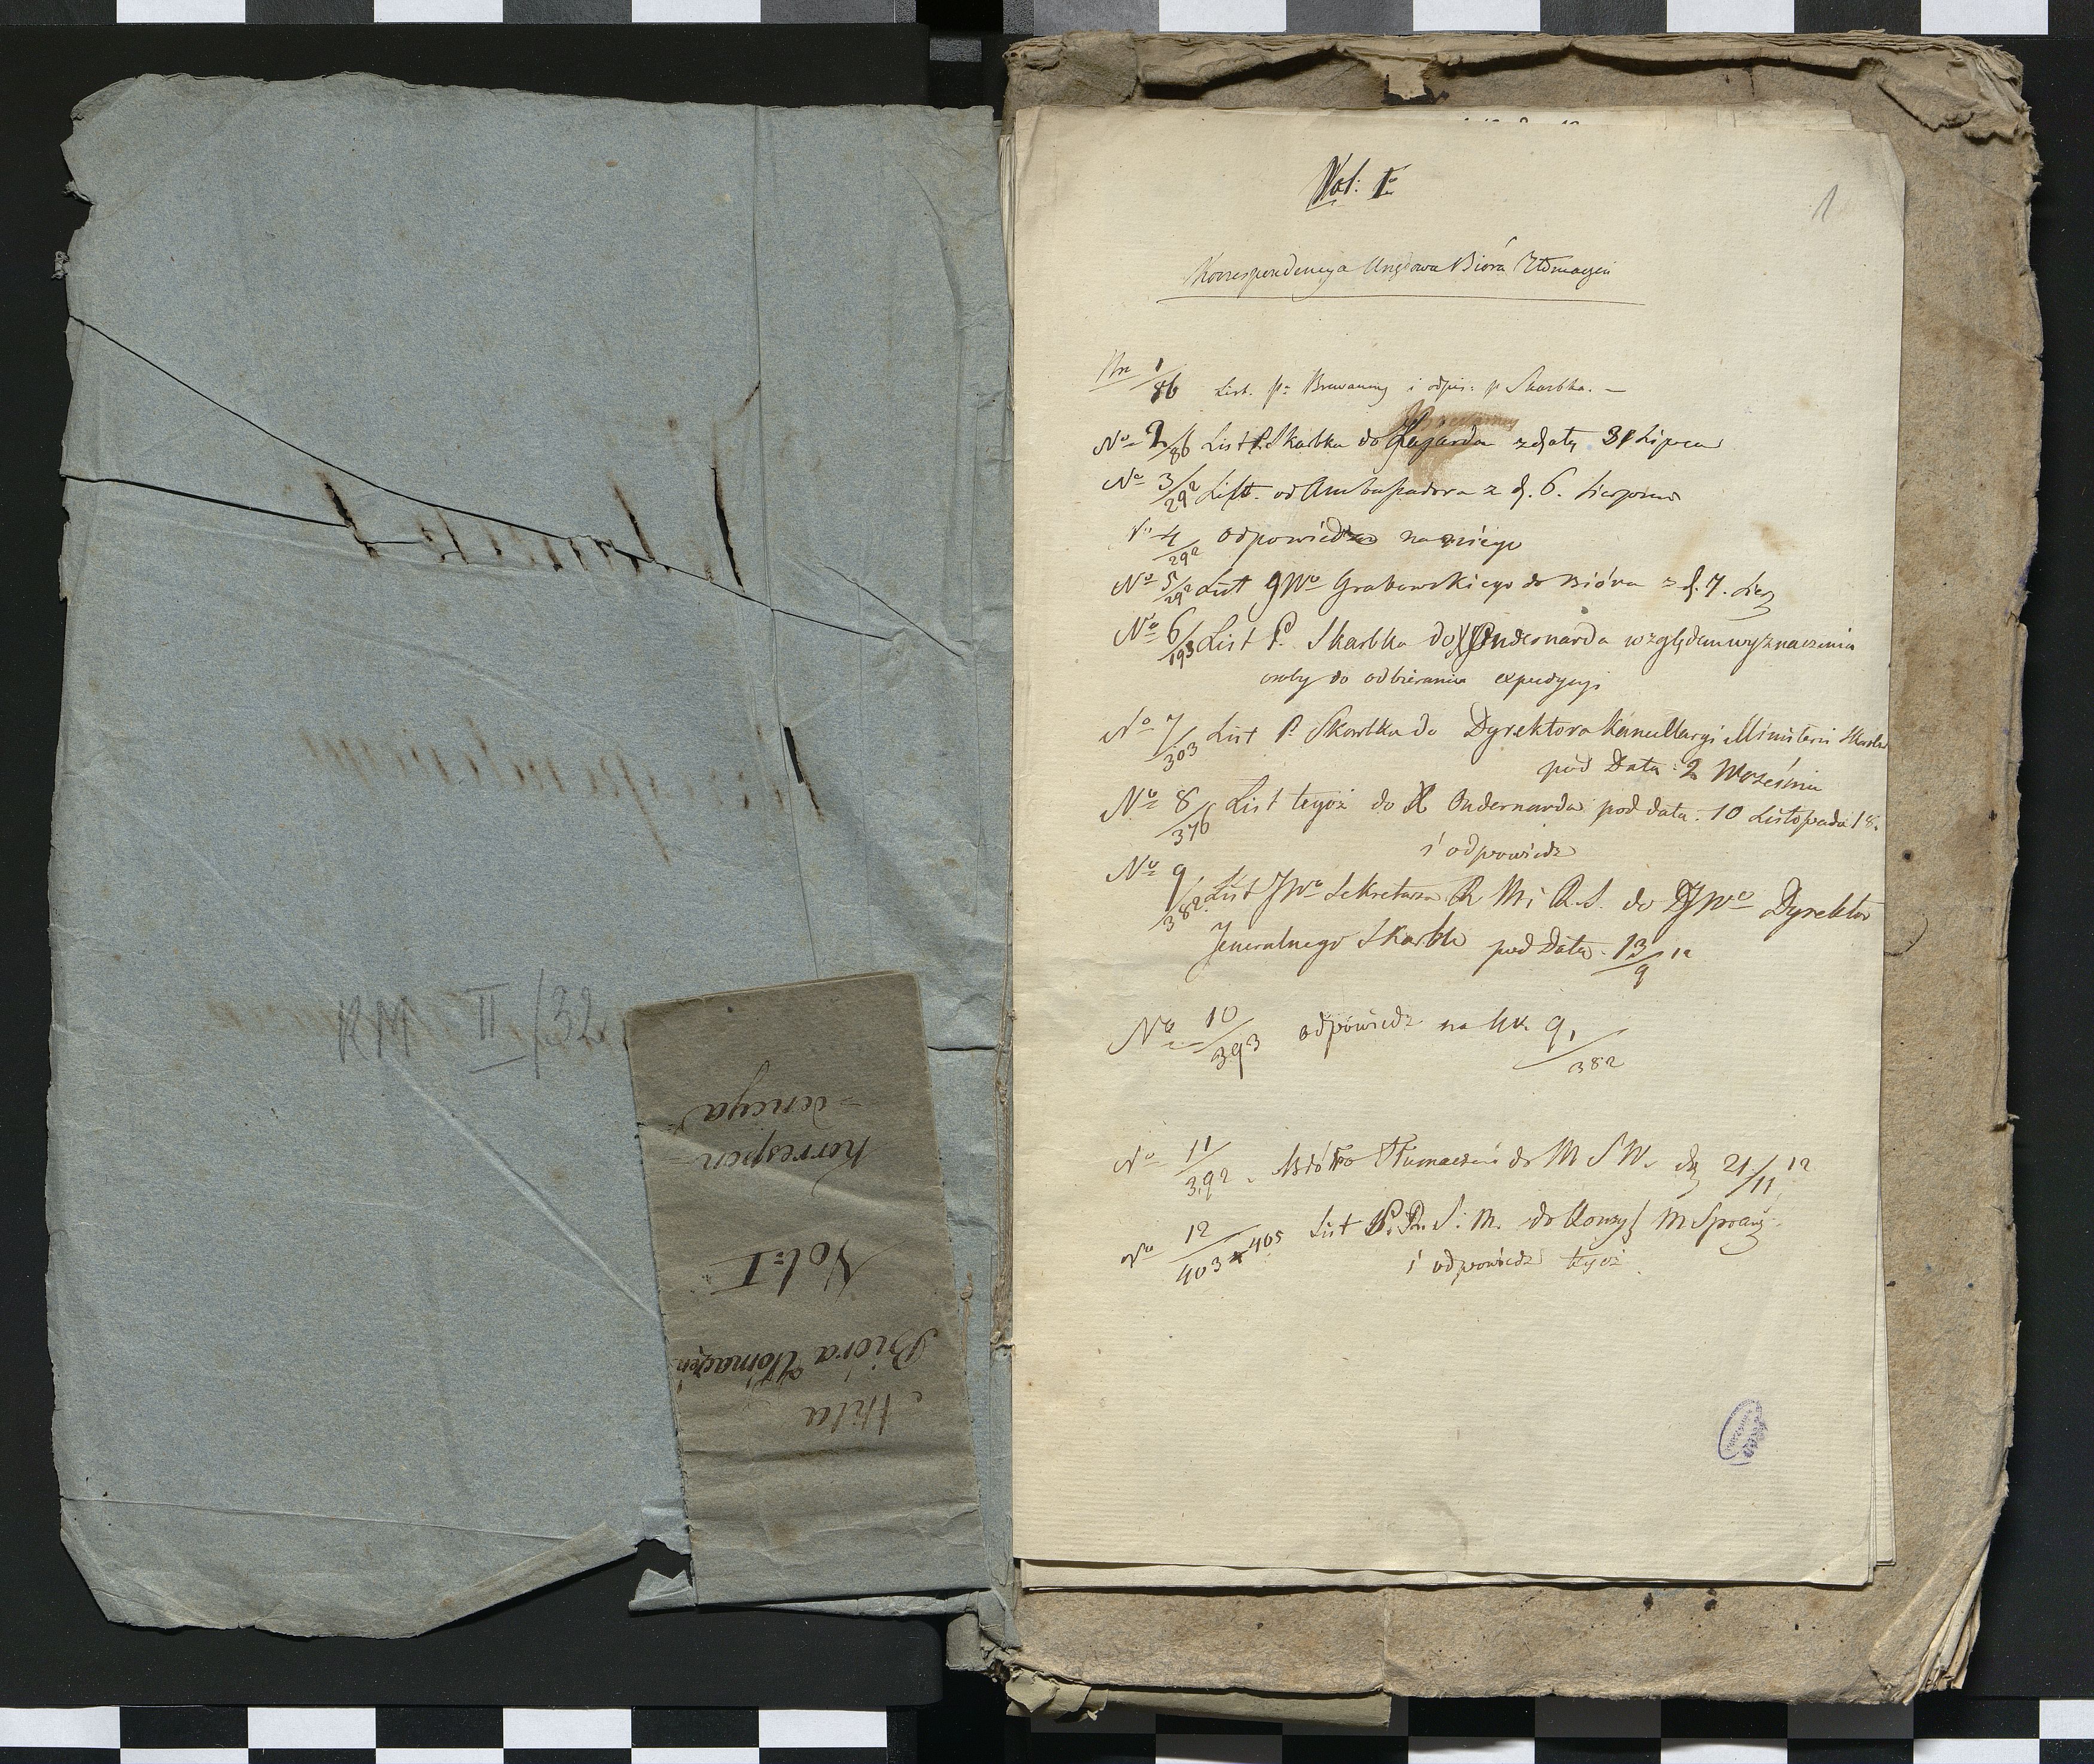 RM II/32
Akta
Bióra Tłómaczeń
Vol: I
Korrespon-
-dencya
1
Vol: I
Korrespondencya Urzędowa Bióra Tłómaczeń
Nro 1/86 List. P. i odpis: p Skarbka. —
No 2/86 List P. Skarbka do z daty 31 Lipca
No 3/292 List. od Ambassadora z d. 6. Sierpnia
No 4/292 odpowiedz na niego
No 5/292 List JWo Grabowskiego do Bióra z d. 7.
No 6/193 List P. Skarbka do Ondernarda względem wyznaczenia
osoby do odbierania expedycyi
No 7/303 List P. Skarbka do Dyrektora Kancellaryi Ministerii Skarbu
pod Datą 2 Wrześnin
No 8/376 List tegoż do X Ondernarda pod data. 10 Listopada 18.
i odpowiedz
No 9/382 List JWo Sekretarza R Mi R.S. do JWo Dyrektor
Jeneralnego Skarbu pod Datą. 13/9 12
No 10/393 odpowiedz na 9,/382
No 11/392. Bióro Tłumaczeń do M S W. 21/11 12
No 12/403 405 List P. R. S: M. do M Spraw
i odpowiedz tegoż